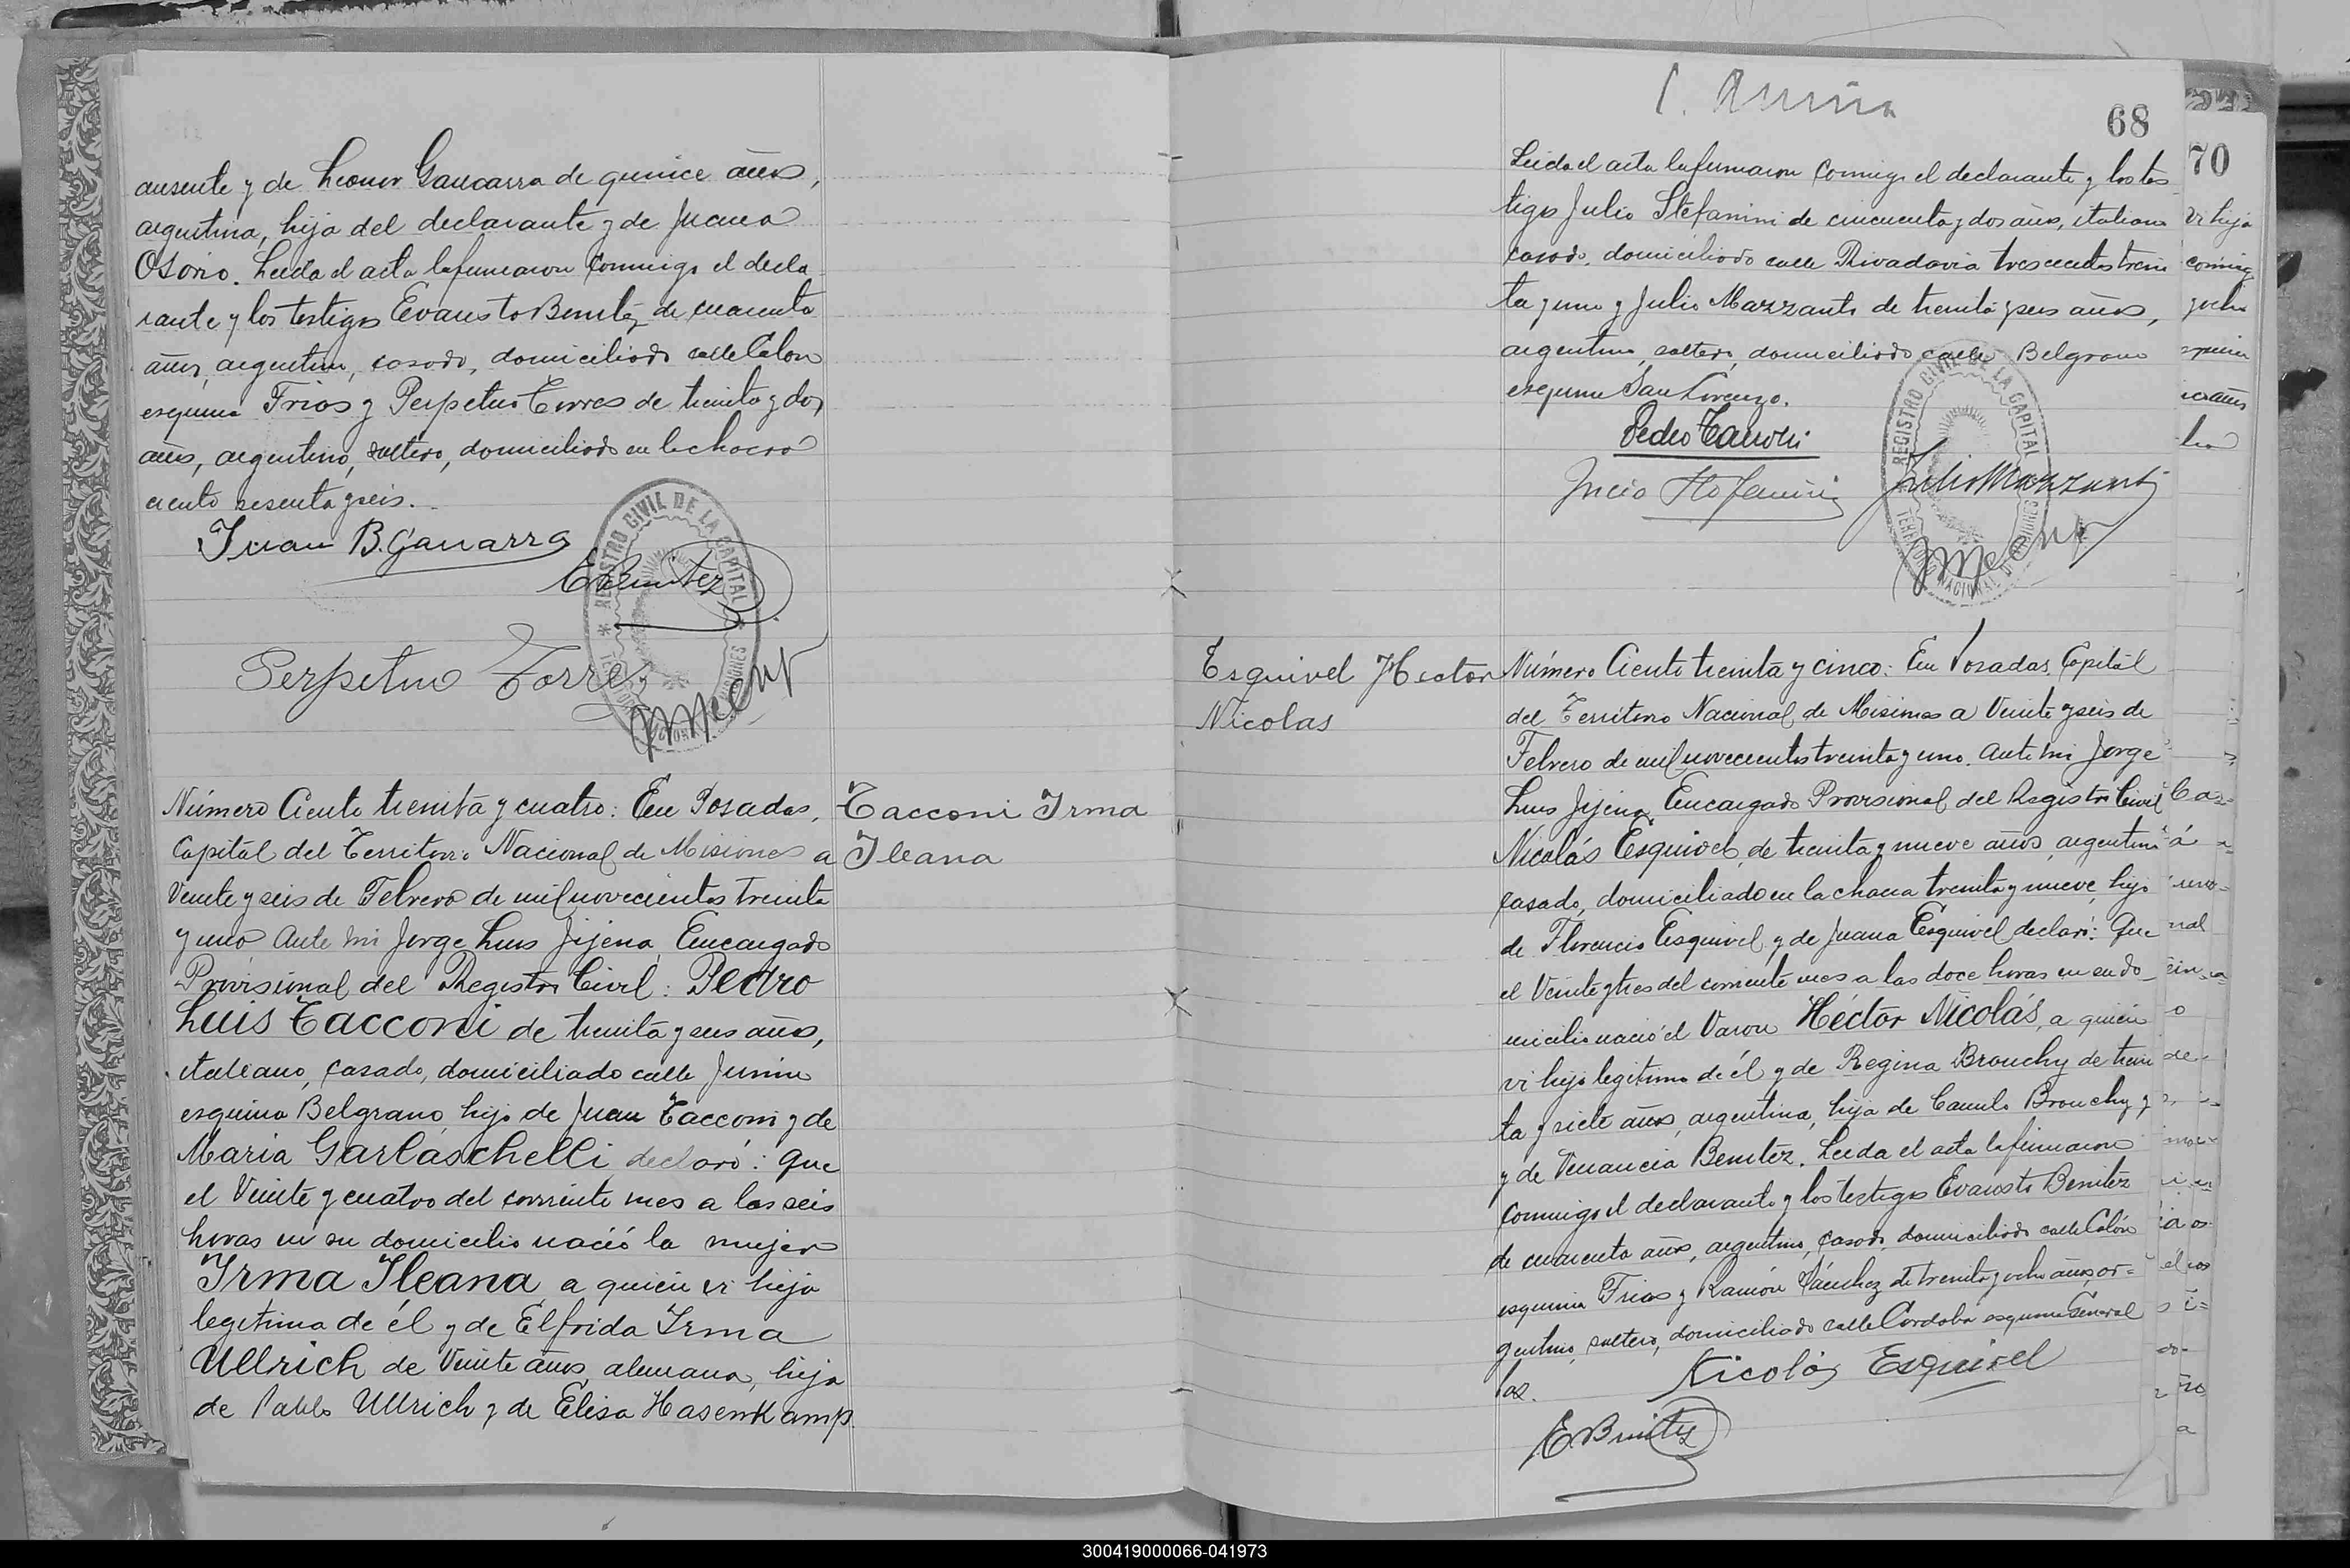 ausente y de Leonor Gauarra de quince años,
argentina, hija del declarante y de Juana
Osorio. Leida el acta la firmaron conmigo el decla
rante y los testigos Evaristo Benitez de cuarenta
años, argentino, casado, domiciliado calle Colon
esquina Frias y Perpetuo Torres de treinta y dos
años, argentino, soltero, domiciliado en la chacra
ciento sesenta y seis.
Juan B. Gauarra
EBenitez
REGISTRO CIVIL DE LA CAPITAL
Perpetuo Torres
Número Ciento treinta y cuatro: En Posadas,
Capital del Territorio Nacional de Misiones a
Veinte y seis de Febrero de mil novecientos treinta
y uno Ante mi Jorge Luis Jijena, Encargado
Provisional del Registro Civil: Pedro
Luis Tacconi de treinta y seis años,
italiano, casado, domiciliado calle Junin
esquina Belgrano, hijo de Juan Tacconi y de
Maria Garlaschelli declaró: Que
el Veinte y cuatro del corriente mes a las seis
horas en su domicilio nació la mujer
Irma Ileana a quien vi hija
legitima de él y de Elfrida Irma
Ullrich de Veinte años, alemana, hija
de Pablo Ullrich y de Elisa Hasenkamp.
Tacconi Irma
Ileana
68
Leida el acta la firmaron conmigo el declarante y los tes
tigos Julio Stefanini de cincuenta y dos años, italiano
casado, domiciliado calle Rivadavia trescientos trein
ta y uno y Julio Mazzanti de treinta y seis años,
argentino, soltero, domiciliado calle Belgrano
esquina San Lorenzo.
Pedro Tacconi
Julio Stefanini
Julio Mazzanti
REGISTRO CIVIL DE LA CAPITAL
TERRITORIO NACIONAL DE MISIONES
Esquivel Hector
Nicolas
Número Ciento treinta y cinco: En Posadas, Capital
del Territorio Nacional de Misiones a Veinte y seis de
Febrero de mil novecientos treinta y uno. Ante mi Jorge
Luis Jijena, Encargado Provisional del Registro Civil
Nicolás Esquivel, de treinta y nueve años, argentino
casado, domiciliado en la chacra treinta y nueve, hijo
de Florencio Esquivel y de Juana Esquivel declaró: Que
el Veinte y tres del corriente mes a las doce horas en su do
micilio nació el Varon Héctor Nicolás, a quien
vi hijo legitimo de él y de Regina Brouchy de trein
ta y siete años, argentina, hija de Camilo Brouchy y
y de Venancia Benitez. Leida el acta la firmaron
conmigo el declarante y los testigos Evaristo Benitez
de cuarenta años, argentino, casado, domiciliado calle Colón
esquina Frias y Ramón Sánchez de treinta y ocho años, ar=
gentino, soltero, domiciliado calle Cordoba esquina General
Paz.
Nicolás Esquivel
EBenitez
70
vi hija
300419000066-041973